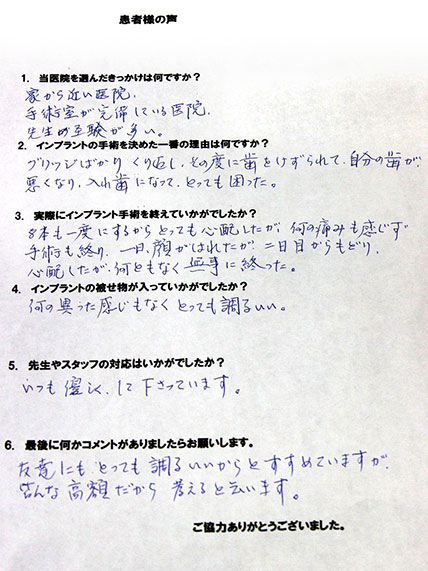 患者様の声
1. 当医院を選んだきっかけは何ですか？
家から近い医院.
手術室が完備している医院.
先生の経験が多い。
2. インプラントの手術を決めた一番の理由は何ですか？
ブリッジばかりくり返し、その度に歯をけずられて、自分の歯が
悪くなり、入れ歯になって、とっても困った。
3. 実際にインプラント手術を終えていかがでしたか？
8本も一度にするからとっても心配したが、何の痛みも感じず
手術も終り、一日、顔がはれたが、二日目からもどり、
心配したが、何ともなく無事に終った。
4. インプラントの被せ物が入っていかがでしたか？
何の異った感じもなくとっても調るいい。
5. 先生やスタッフの対応はいかがでしたか？
いつも優しく、して下さっています。
6. 最後に何かコメントがありましたらお願いします。
友達にもとっても調るいいからとすすめていますが、
皆んな高額だから考えると云います。
ご協力ありがとうございました。